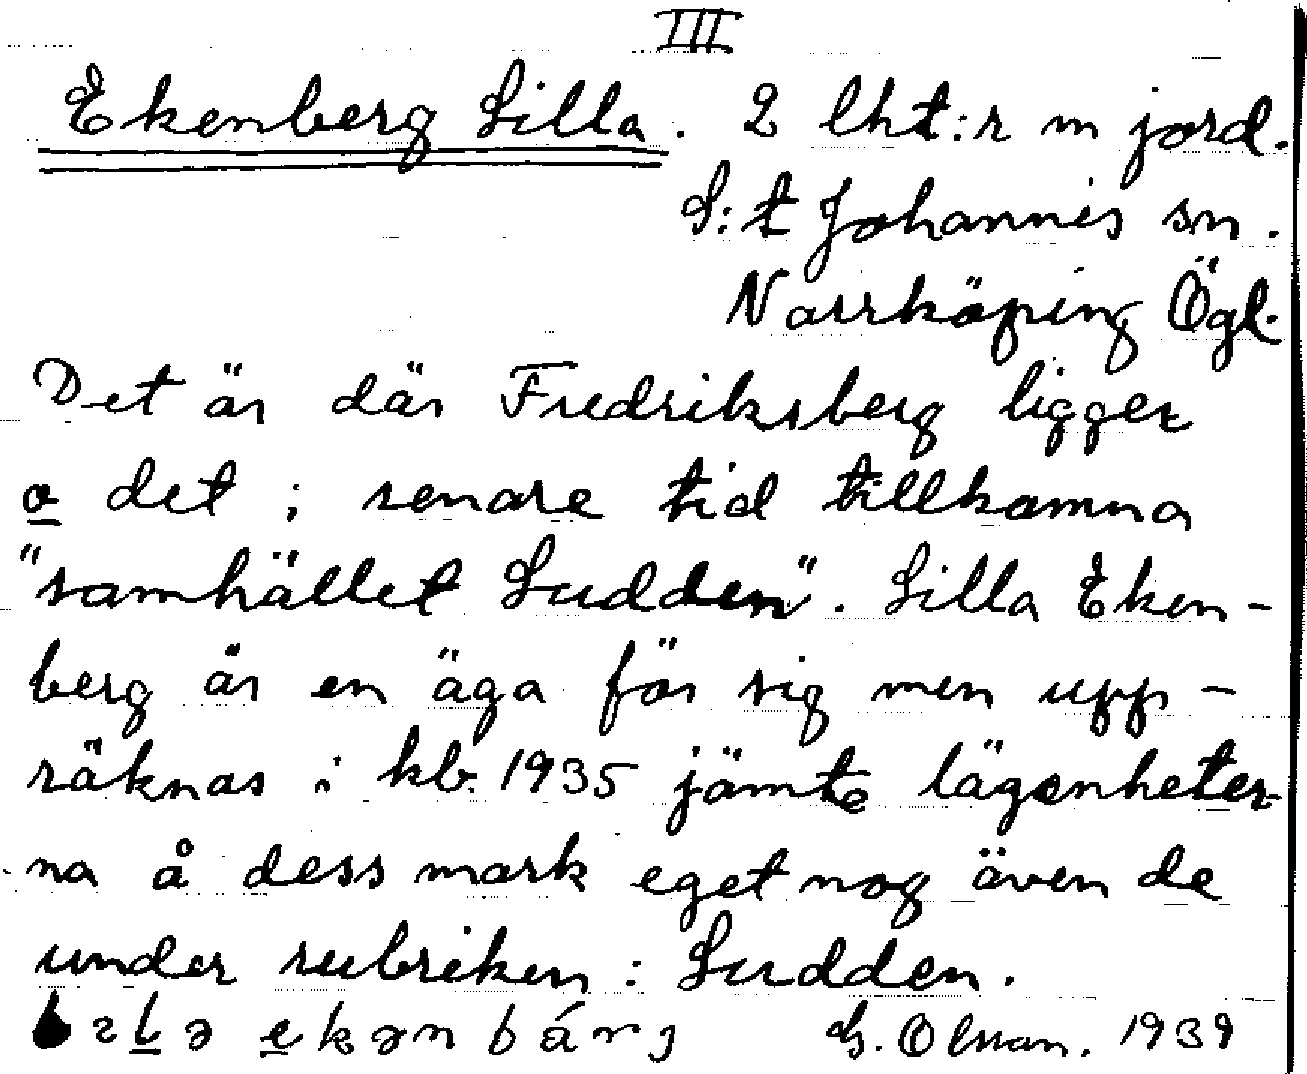 III
Ekenberg Lilla. 2 lht:r m jord.
S:t Johannis sn.
Norrköping Ögl.
Det är där Fredriksberg ligger
o det i senare tid tillkomna
"samhället Sudden". Lilla Eken-
berg är en äga för sig men upp-
räknas i kb. 1935 jämte lägenheter
na å dess mark eget nog även de
under rubriken: Sudden.
G. Olsson. 1939